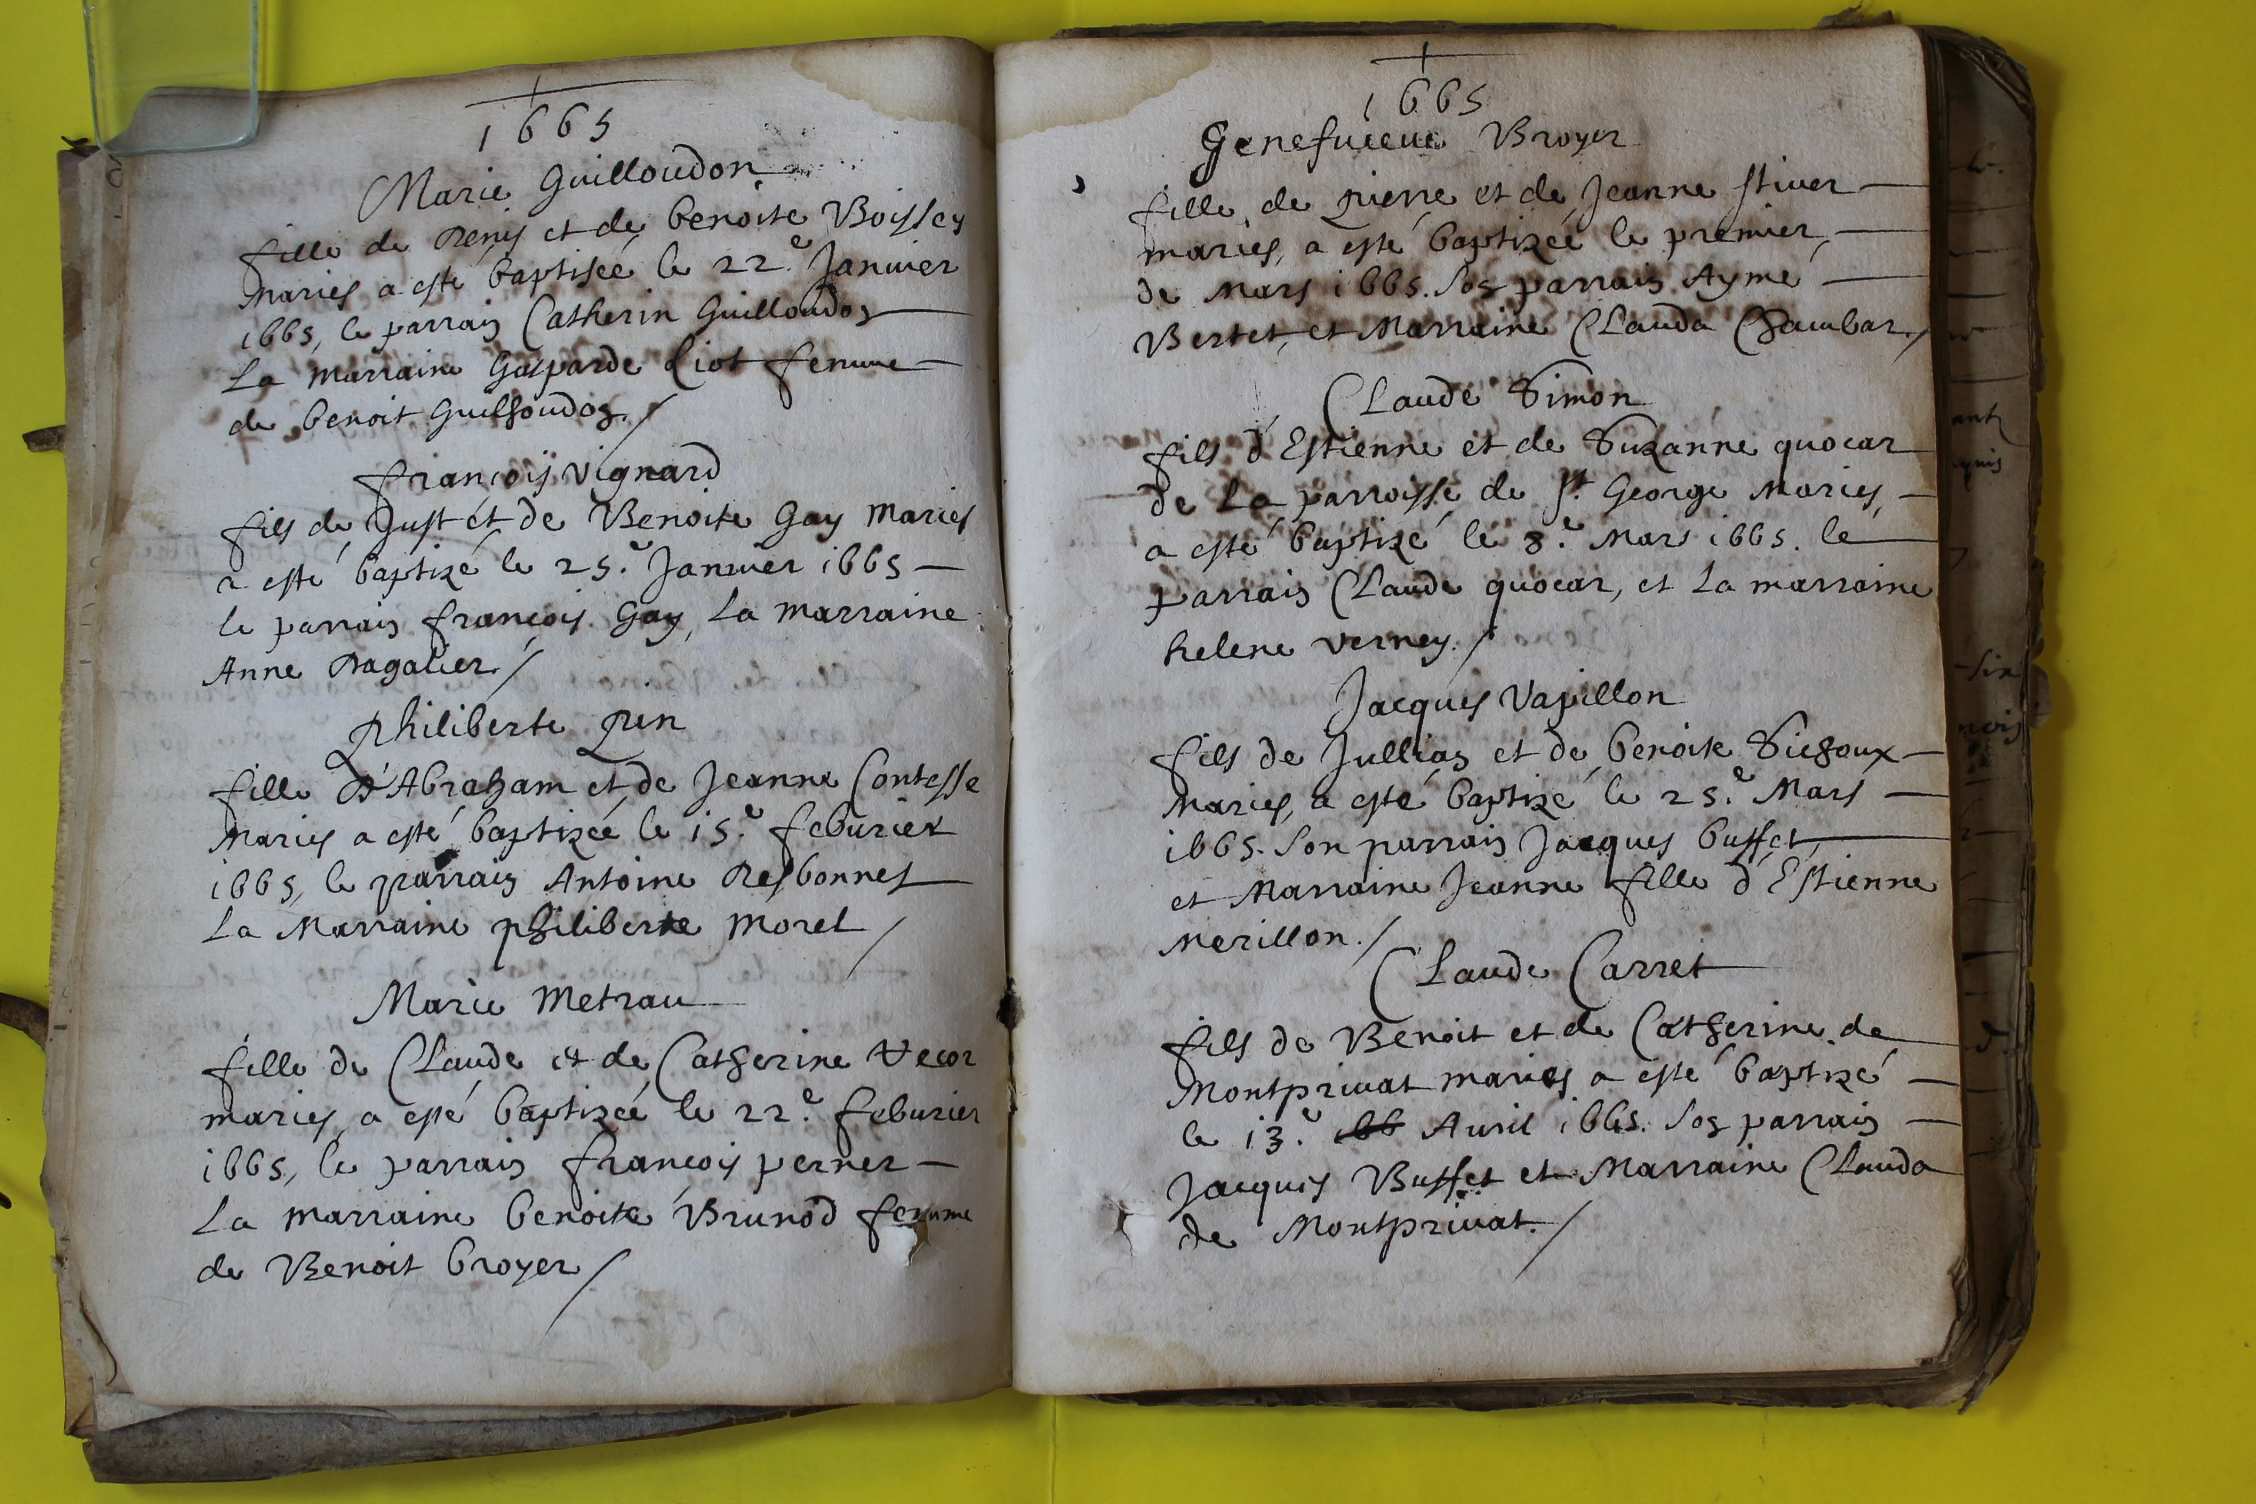 1665
Marie Guilloudon
fille de Denys et de benoite Boissey
Mariés a esté baptisée le 22.e Januier
1665, le parrain Catherin Guilloudon
La marraine Gasparde Liot femme
de benoit Guilloudon /
françois vignard
fils de Just et de Benoite Gay Mariés
a esté baptizé le 25.e Januier 1665
le parrain françois Gay, La marraine
Anne Dagalier /
Philiberte Pen
fille d'Abraham et de Jeanne Contesse
Mariés a esté baptizée le 15.e feburier
1665, le parrain Antoine Desbonnes
La Marraine philiberte morel /
Marie Metrau
fille de Claude et de Catherine Vecor
mariés, a esté baptizée le 22.e feburier
1665, le parrain françois perner
La marraine benoite Brunod femme
de Benoit broyer /
1665
Genefuieue Broyer
fille de Pierre et de Jeanne stiuer
mariés, a esté baptizée le premier,
de Mars 1665. Son parrain Aymé
Bertet, et Marraine Clauda Chambar. /
Claude Simon
fils d'Estienne et de Suzanne quocar
de La parroisse de st. George Mariés,
a esté baptizé le 8.e Mars 1665. le
parrain Claude quocar, et La marraine
helene verney. /
Jacques Vapillon
fils de Jullian et de benoite Sichoux
Mariés, a esté baptizé le 25.e Mars
1665. Son parrain Jacques buffet,
et Marraine Jeanne fille d'Estienne
Merillon. /
Claude Carret
fils de Benoit et de Catherine de
Montpriuat mariés a esté baptizé
le 13.e 166 Auril 1665. Son parrain
Jacques Buffet et Marraine Clauda
de Montpriuat. /